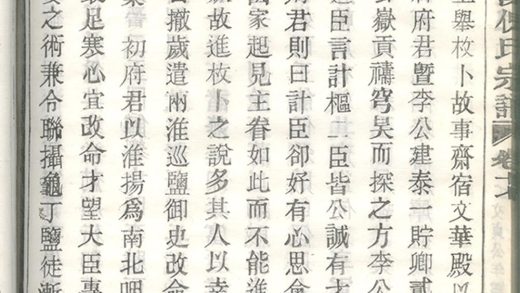 氏宗譜 卷十
文貞公年譜
舉枚卜故事齋宿文華殿以
府君暨李公建泰一貯卿貳
嶽貢禱穹昊而探之方李公
臣言計樞二臣皆公誠有才
府君則曰計臣卻好有心思會
家起見主眷如此而不能進
故進枚卜之說多其人以幸
撤歲遣兩淮巡鹽御史改命
初府君以淮揚爲南北咽
足寒心宜改命才望大臣專
之術兼令聯攝竈丁鹽徒漸